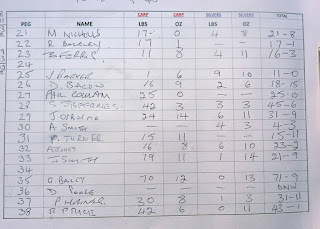 PEG NAME CARP LBS CARP OZ SILVERS LBS SILVERS OZ TOTAL
21 M NICHOLLS 17 0 4 8 21-8
22 R 17 1 — — 17-1
23 B FERRIS 11 8 4 11 16-3
24
25 J BARKER 1 6 9 10 11-0
26 D BACON 16 9 2 6 18-15
27 PHIL 25 0 — — 25-0
28 S JEFFERIES 42 3 3 3 45-6
29 J OSBORNE 24 14 6 11 31-9
30 A SMITH — — 4 3 4-3
31 P. TURNER 15 11 — — 15-11
32 A JONES 16 8 6 10 23-2
33 J. SMITH 19 11 1 14 21-9
34
35 G. BAILEY 70 12 0 13 71-9
36 D POOLE — — — — DNW
37 P 30 8 1 3 31-11
38 B PRICE 42 6 0 11 43-1